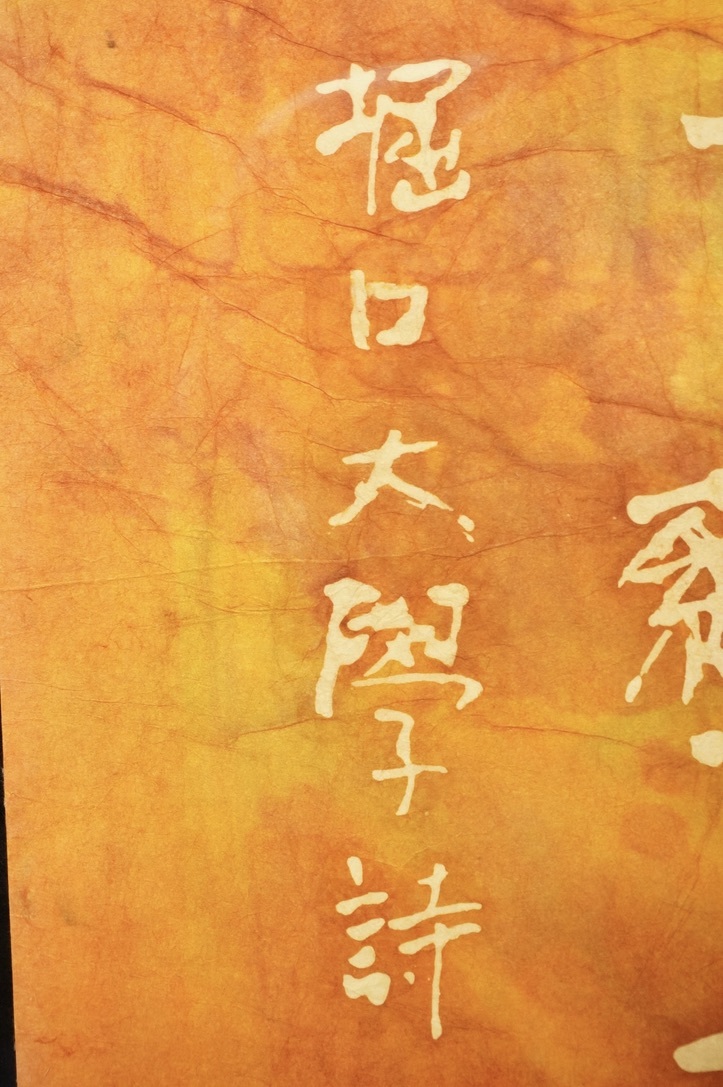 堀口大學詩